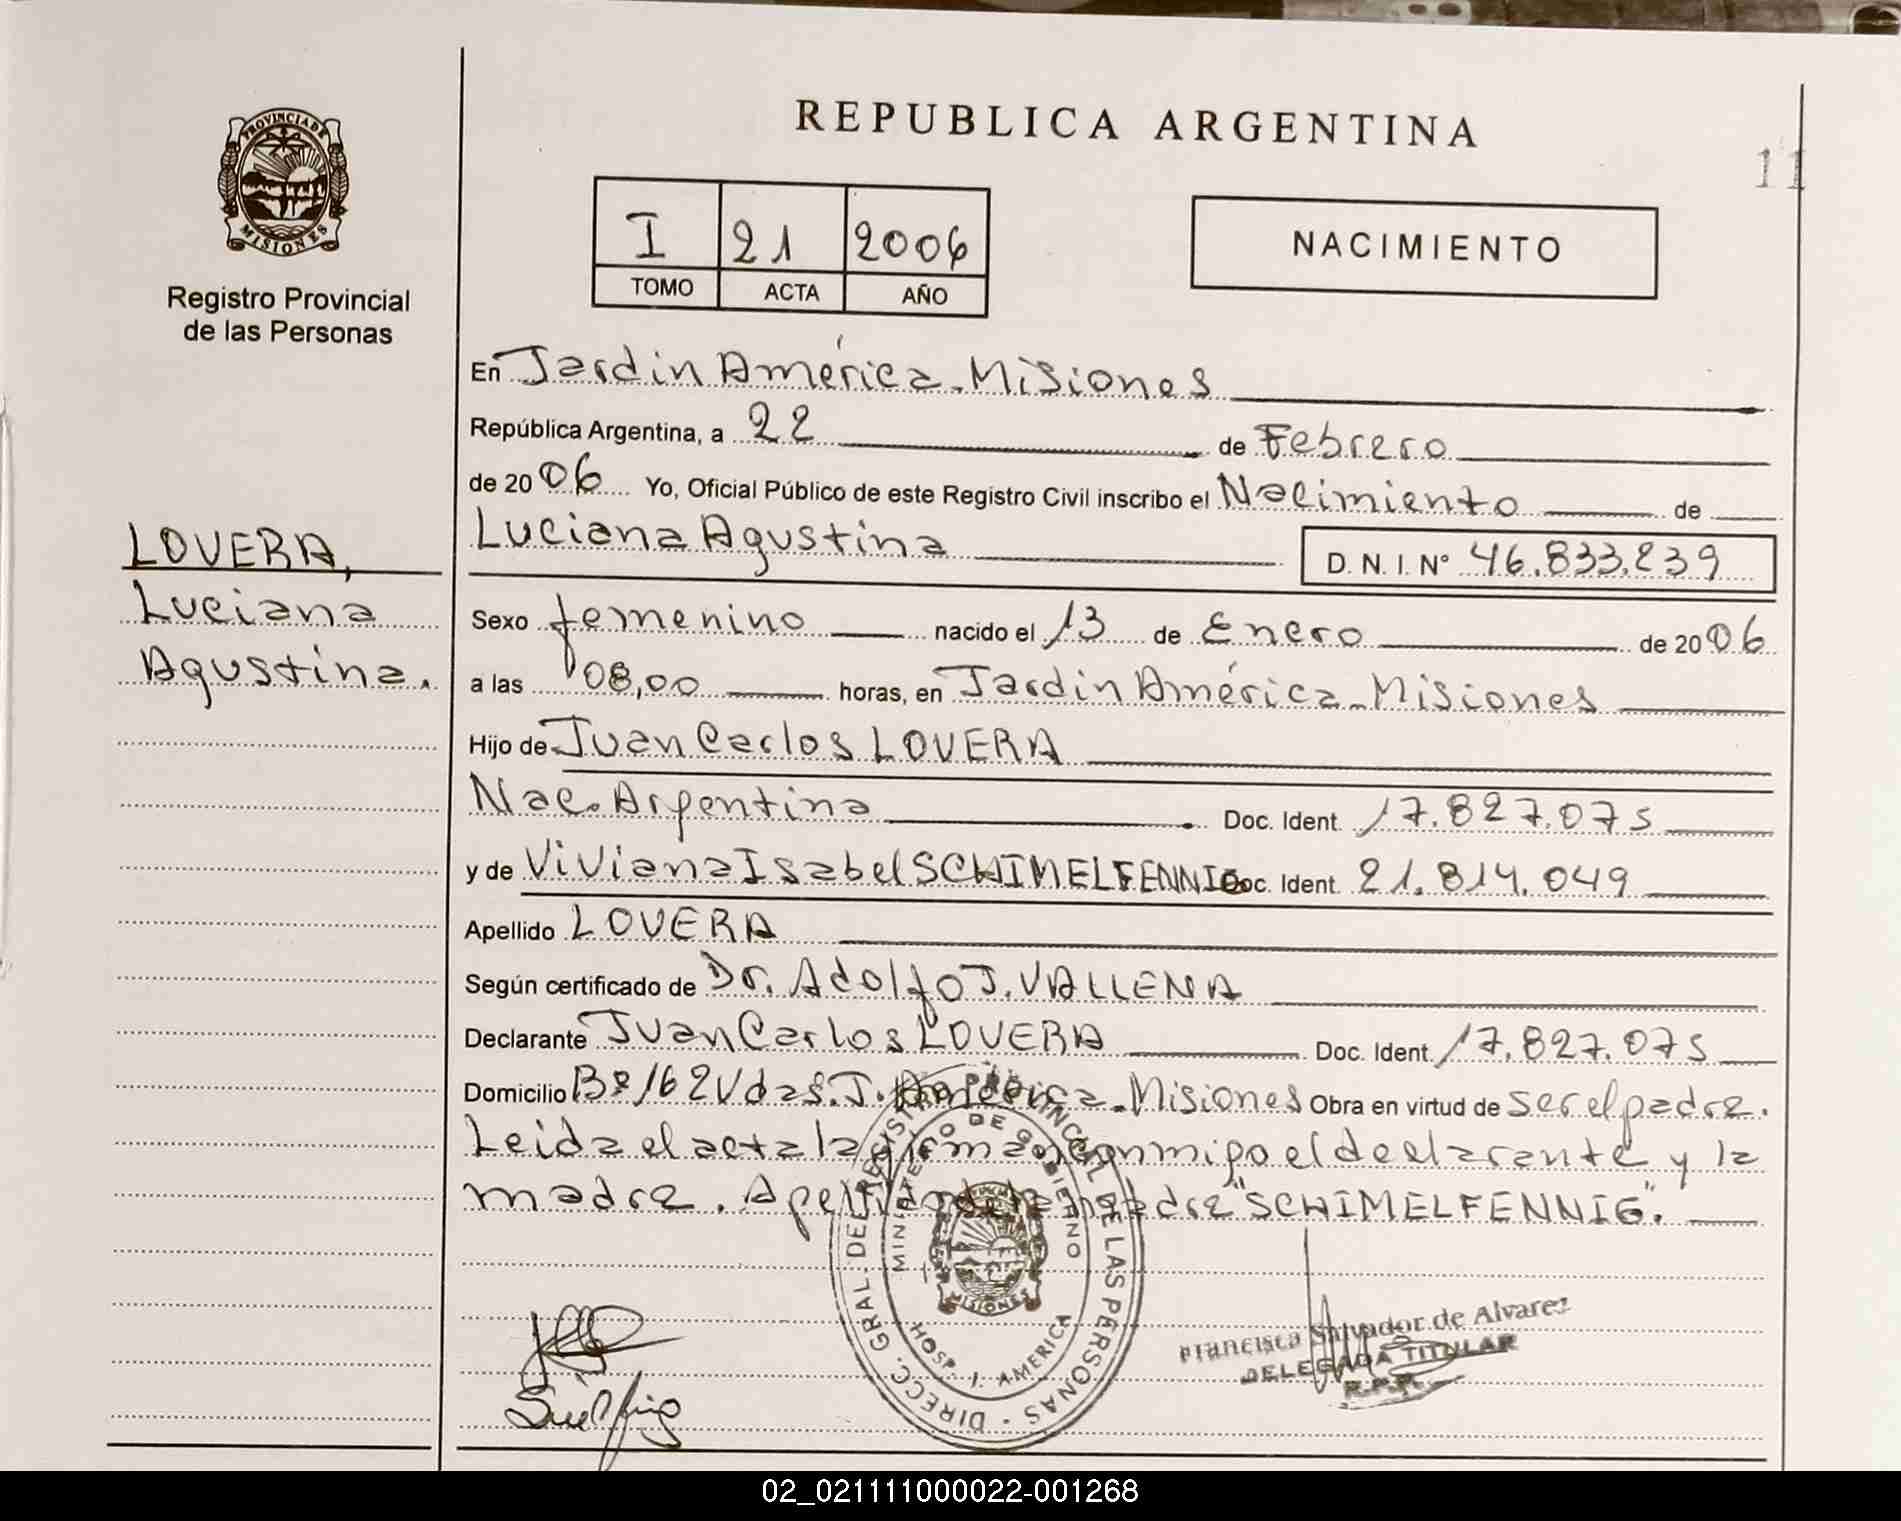 REPUBLICA ARGENTINA
11
PROVINCIA DE
MISIONES
Registro Provincial
de las Personas
I 21 2006
TOMO ACTA AÑO
NACIMIENTO
En Jardin América - Misiones
República Argentina, a 22 de Febrero
de 2006 Yo, Oficial Público de este Registro Civil inscribo el Nacimiento de
Luciana Agustina D. N. I. N° 46.833.239
LOVERA,
Luciana
Agustina.
Sexo femenino nacido el 13 de Enero de 2006
a las 08,00 horas, en Jardin América - Misiones
Hijo de Juan Carlos LOVERA
Nac. Argentina Doc. Ident. 17.827.075
y de Viviana Isabel SCHIMELFENNIG Doc. Ident. 21.814.049
Apellido LOVERA
Según certificado de Dr. Adolfo J. VALLENA
Declarante Juan Carlos LOVERA Doc. Ident 17.827.075
Domicilio B° 162 Vdas. J. América - Misiones Obra en virtud de ser el padre.
Leida el acta la firman conmigo el declarante y la
madre. Apellido de la madre "SCHIMELFENNIG".
DIRECC. GRAL. DE REGISTRO PROVINCIAL DE LAS PERSONAS
MINISTERIO DE GOBIERNO
MISIONES
HOSP. J. AMERICA
Francisca Salvador de Alvarez
DELEGADA TITULAR
R.P.P.
02_021111000022-001268